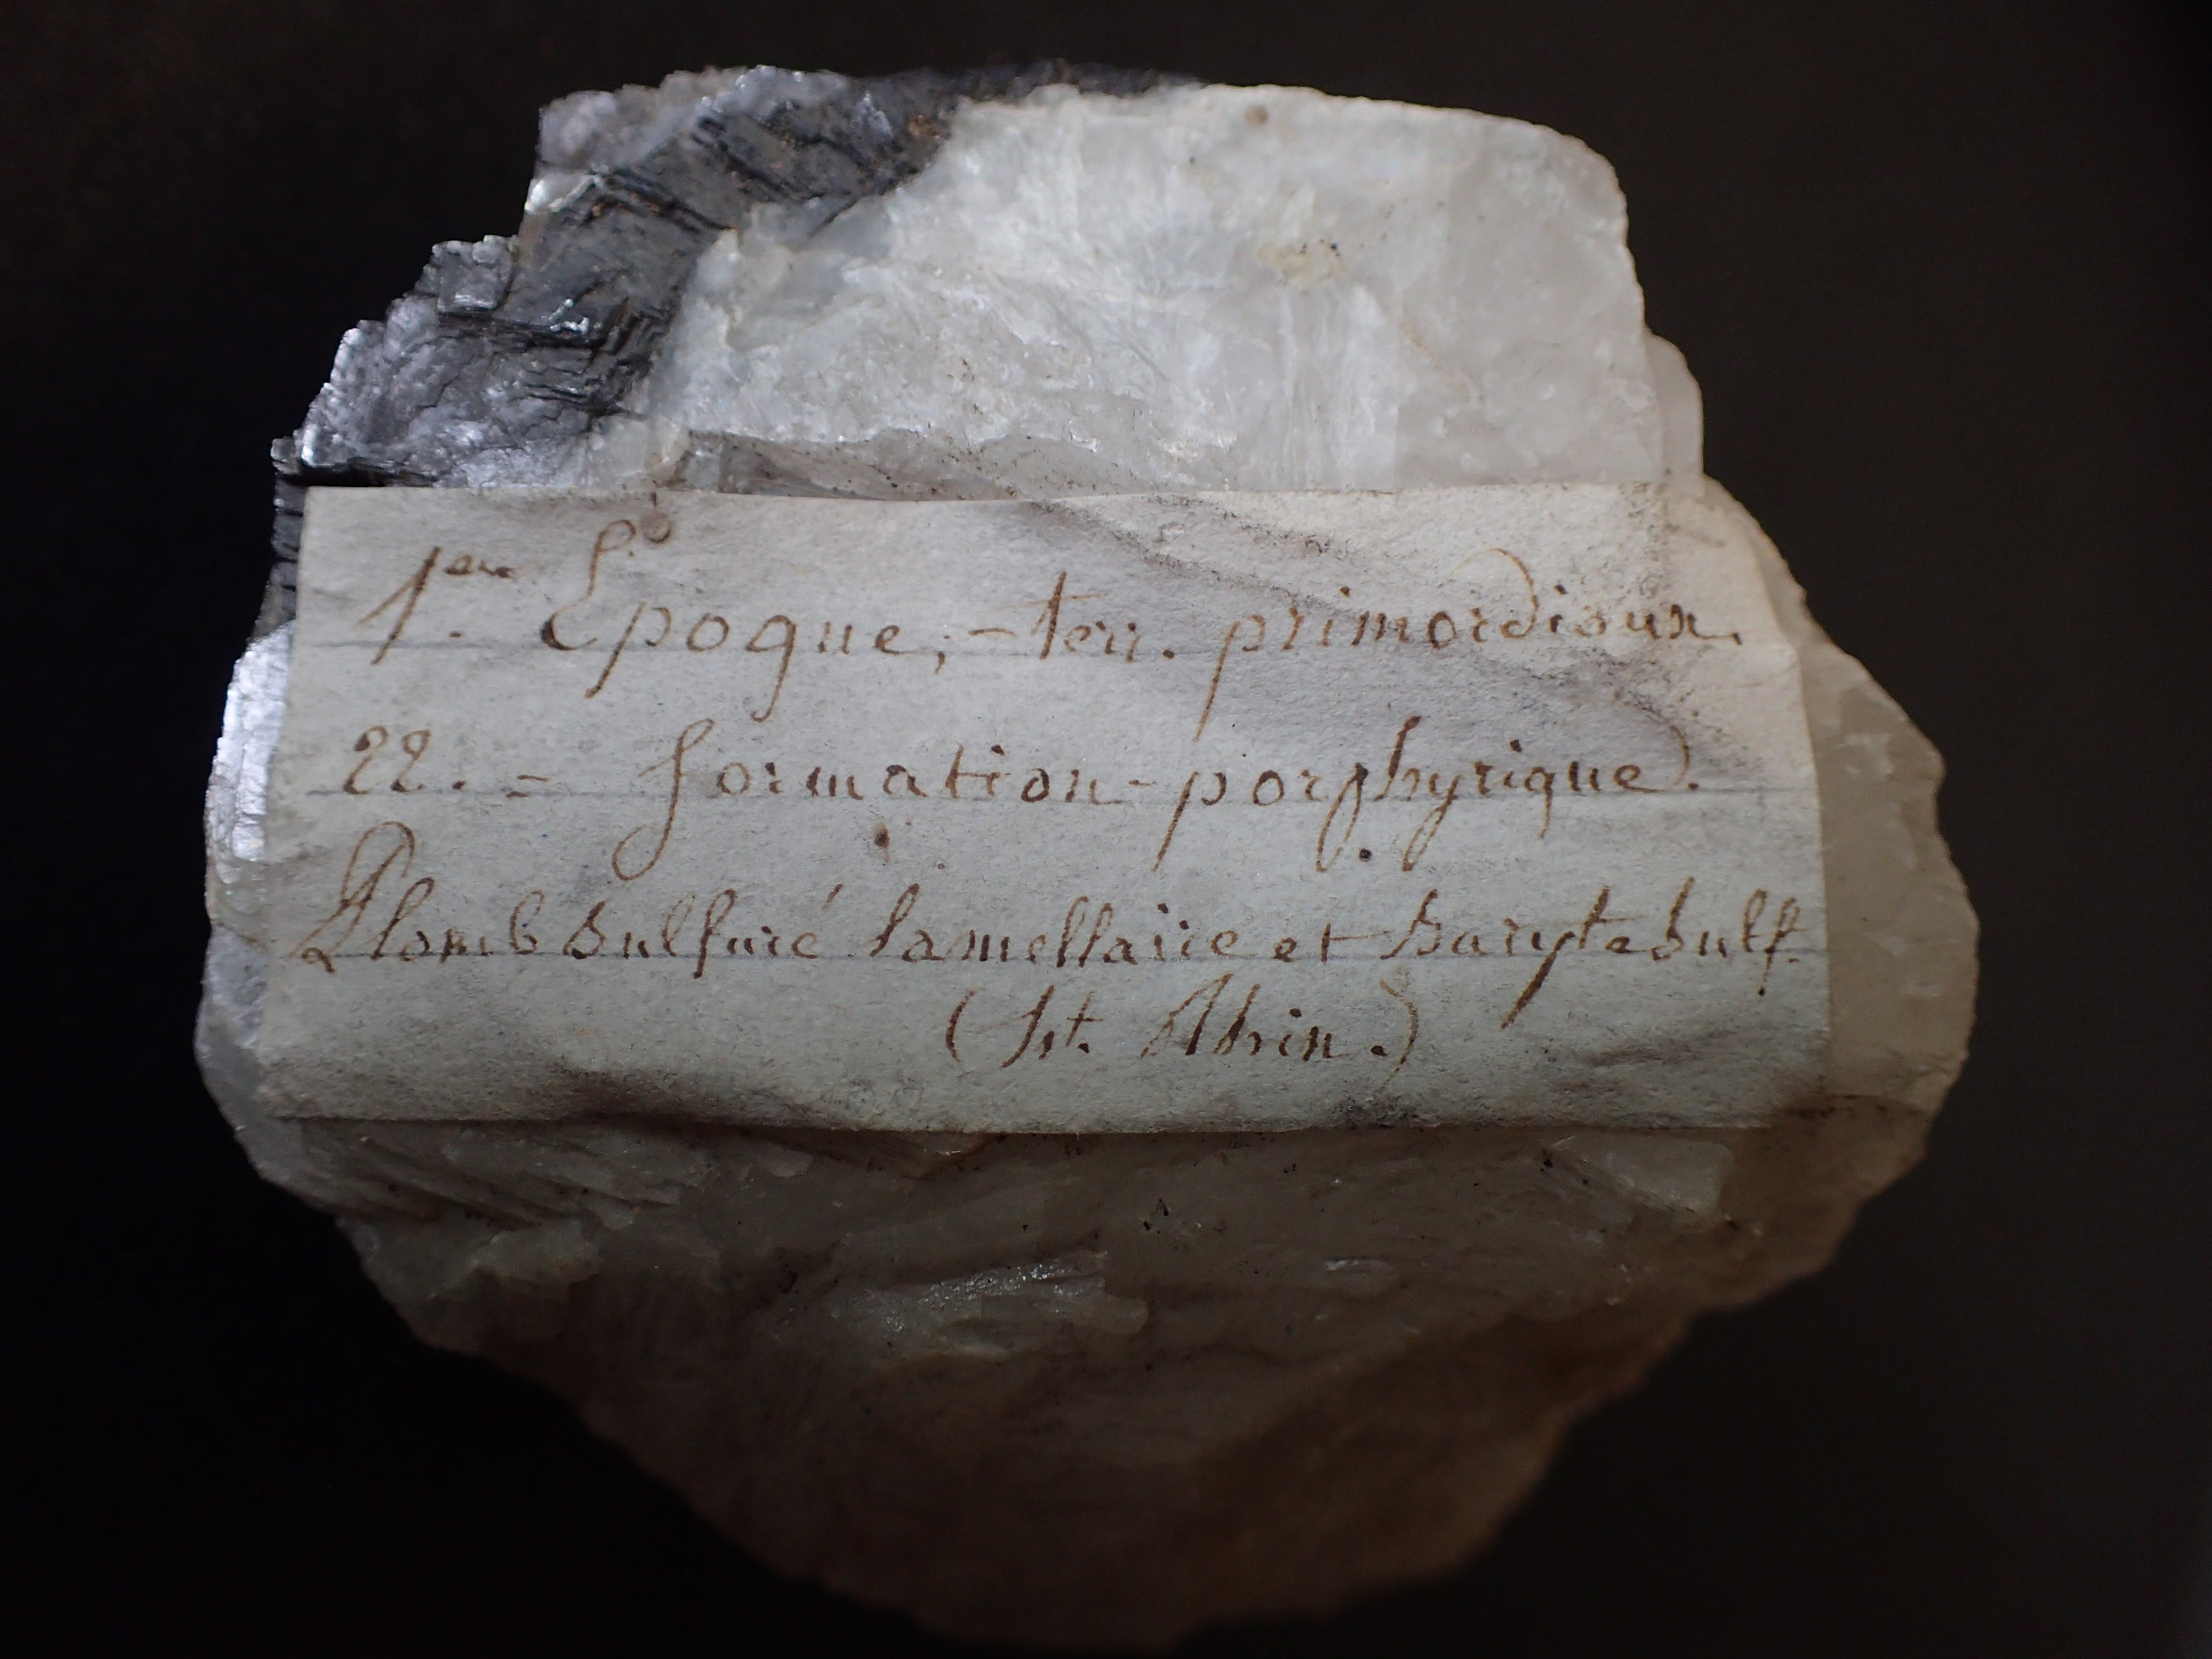 1ere Epoque, - terr. primordiaux.
22. - formation - porphyrique.
Plomb sulfuré lamellaire et Baryte sulf.
(ht. Rhin.)